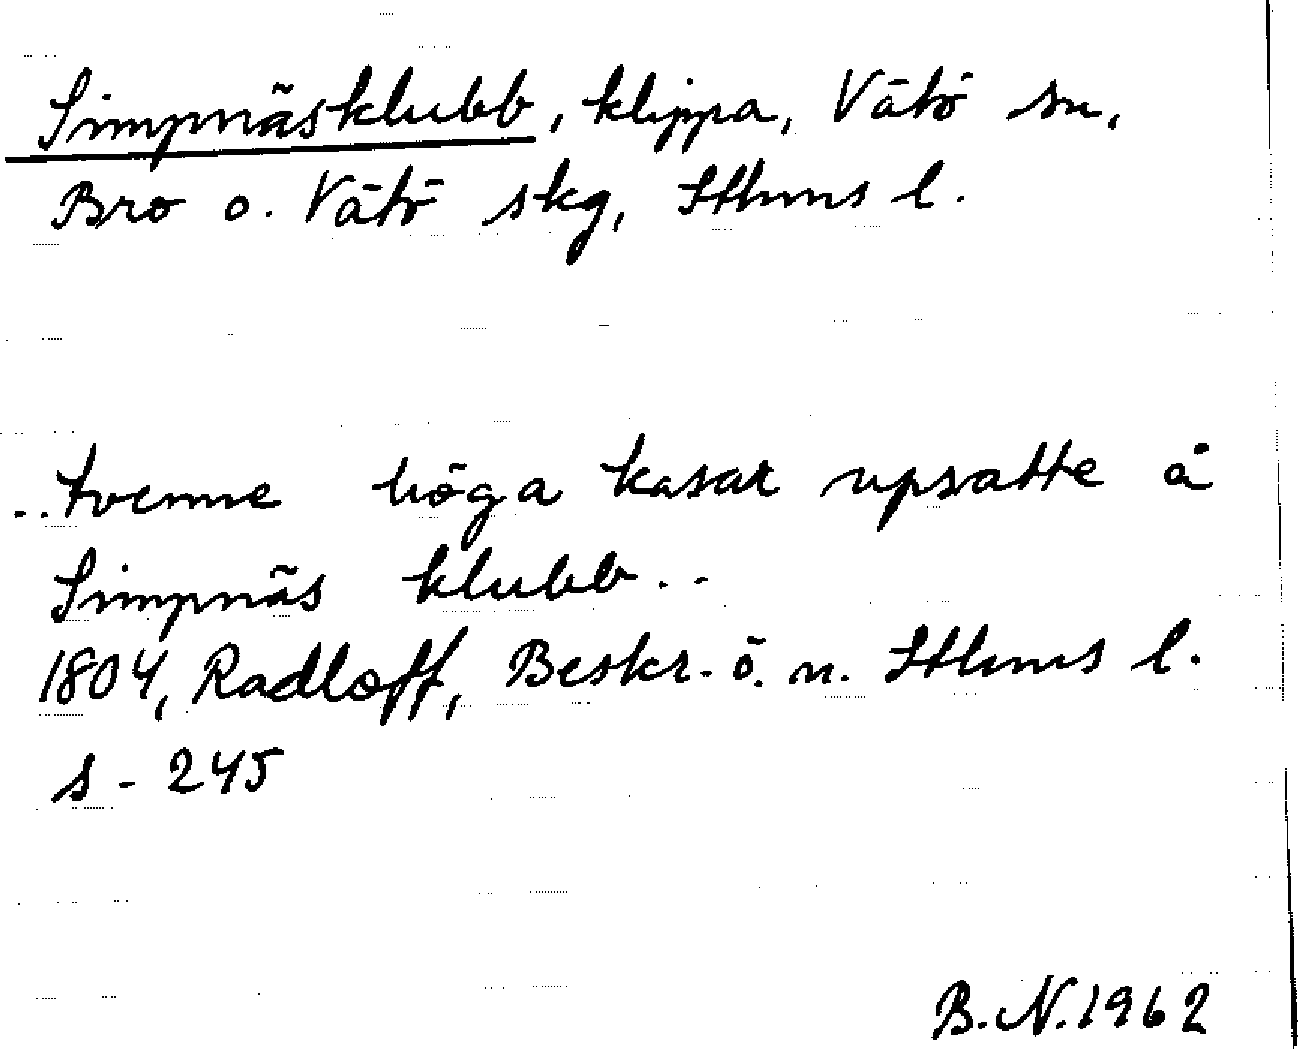 Simpnäsklubb, klippa, Vätö sn,
Bro o. Vätö skg, Sthms l.
..tvenne höga kasar upsatte å
Simpnäs klubb..
1804, Radloff, Beskr. ö. n. Sthms l.
s. 245
B.N.1962